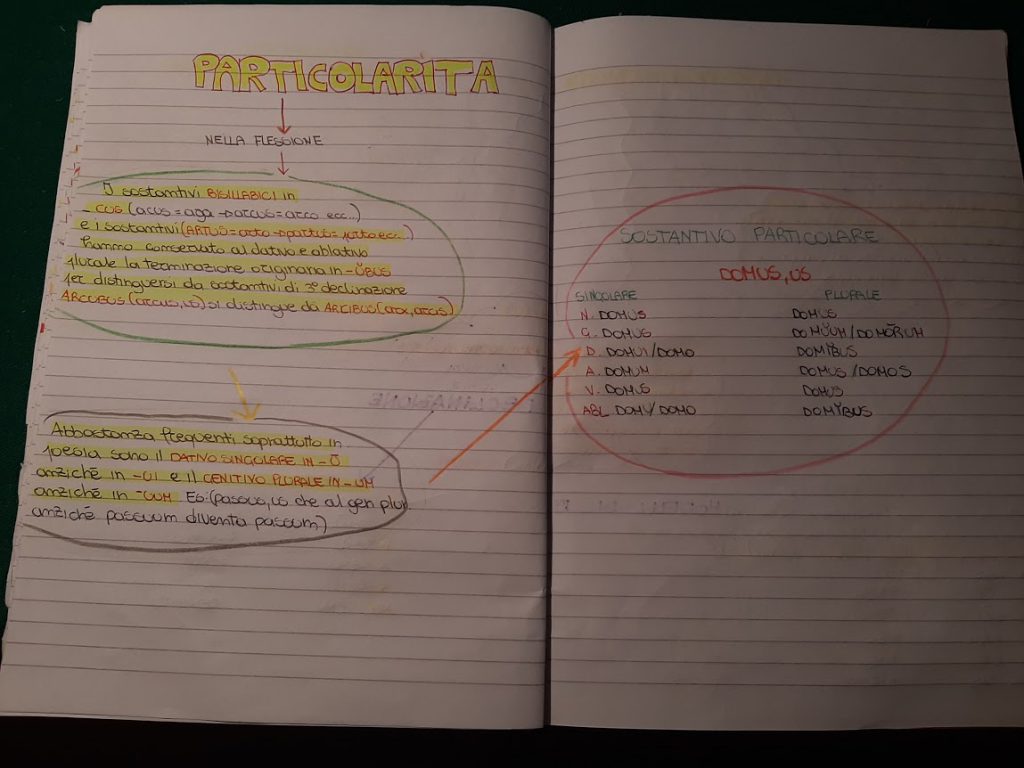 PARTICOLARITA
NELLA FLESSIONE
I sostantivi BISILLABICI in
- CUS (acus = aga → arcus = arco ecc..)
e i sostantivi (ARTUS = arto → partus = parto ecc..)
hanno conservato al dativo e ablativo
plurale la terminazione originaria in -ŬBUS
per distinguersi da sostantivi di 3ª declinazione
ARCUBUS (arcus, us) si distingue da ARCIBUS (arx, arcis)
Abbastanza frequenti soprattutto in
poesia sono il DATIVO SINGOLARE IN -Ū
anziché in -UI e il GENITIVO PLURALE IN -UM
anziché in -UUM Es: (passus, us che al gen plur
anziché passuum diventa passum)
SOSTANTIVO PARTICOLARE
DOMUS, US
SINGOLARE PLURALE
N. DOMUS DOMUS
G. DOMUS DOMŬUM/DOMŌRUM
D. DOMUI/DOMO DOMĬBUS
A. DOMUM DOMUS/DOMOS
V. DOMUS DOMUS
ABL DOMU/DOMO DOMĬBUS